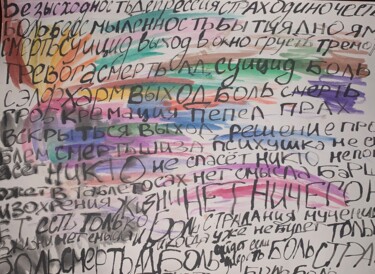 Безысходность депрессия страх одиночес
боль бессмысленность бытия дно ям
смерть суицид выход в окно грусть тремо
тревога смерть ад суицид боль
сэлфхарм выход боль смерть
гроб кремация пепел прах
вскрыться выход решение про
блем смерть шиза психушка не сп
асёт никто не спасёт никто непо
может в таблетосах нет смысла бары
шизохрения жизни нет ничего н
ет есть только боль страдания мучения
жизни нет смысла никогда уже не будет только
боль смерть ад боль смерть боль стра